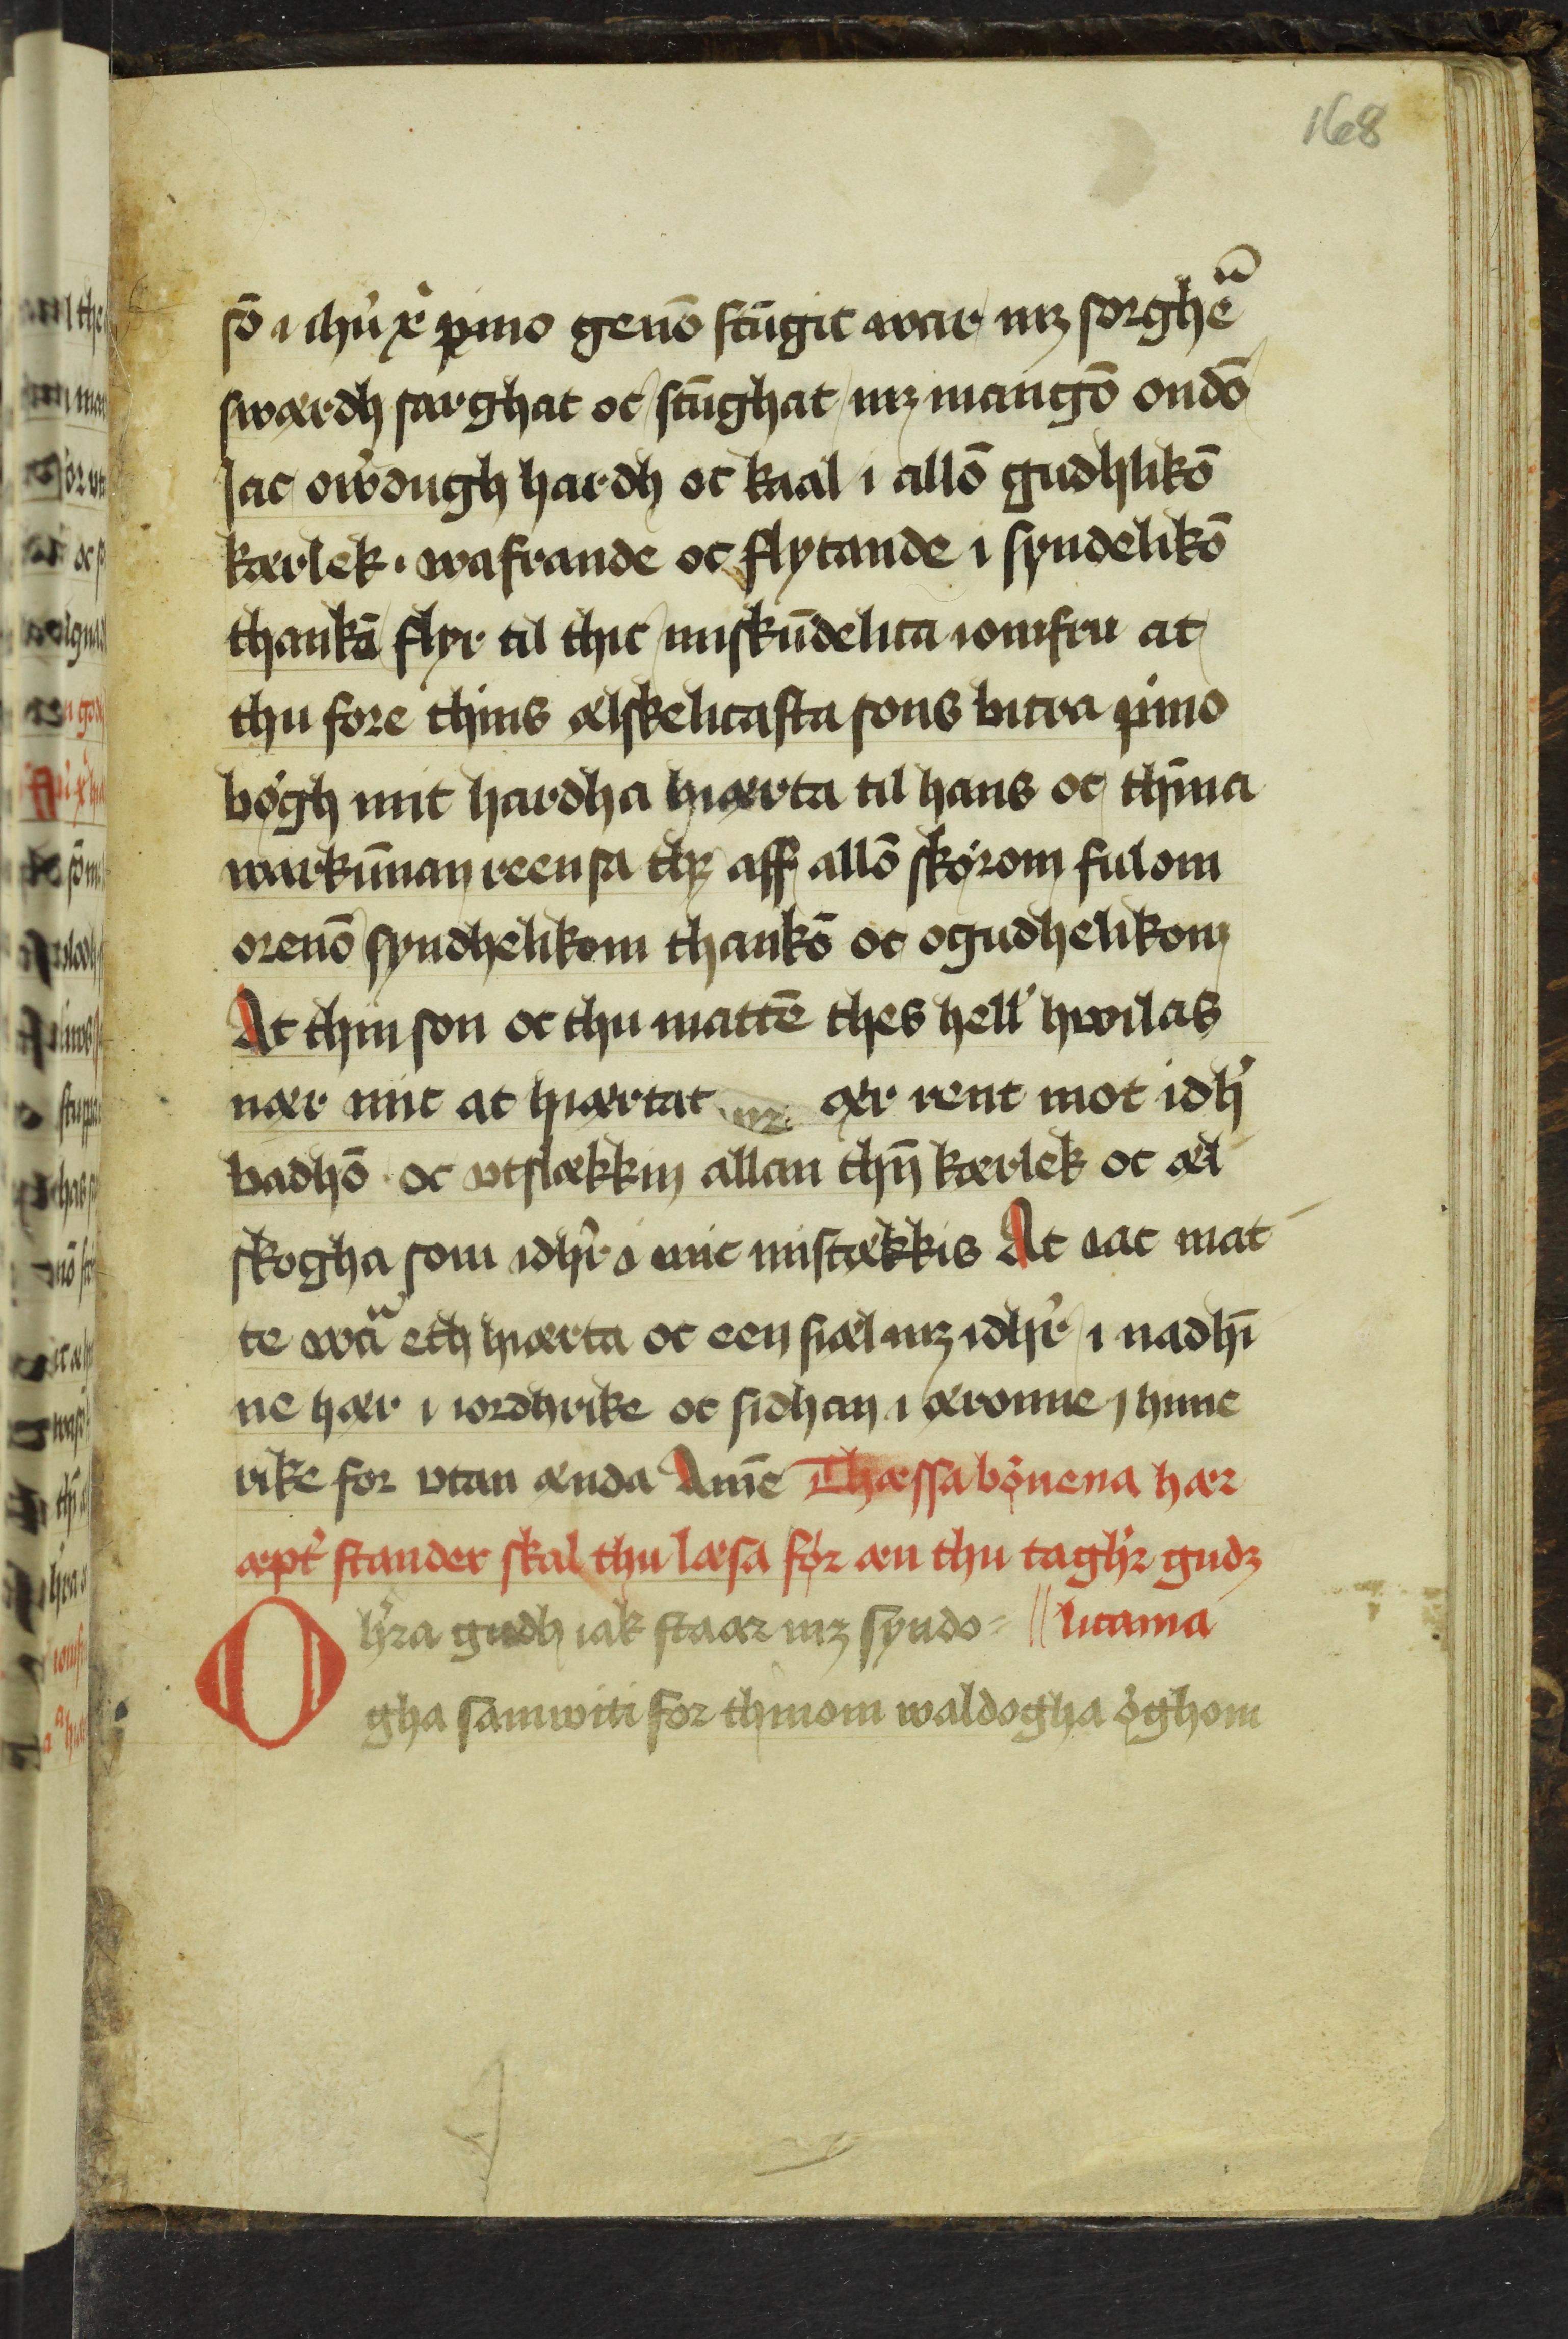 168
sō i ihū x̓ pino genō stūgit war mz sorghēa
swærdh sarghat oc stūghat mz mangō ondō
Jac ow̓dugh hardh oc kaal i allō gudhlikō
kærlek · wafrande oc flytande i syndelikō
thankā flyr til thic miskūdelica iomfru at
thu fore thins ælskelicasta sons bitra pino
bögh mit hardha hiærta til hans oc thīna
warkūnan reensa thz aff allō skörom fulom
orenō syndhelikom thankō oc ogudhelikom
At thin son oc thu mattē thes hell̓ hwilas
nær mic at hiærtat ær rent mot idh̓
badhō · oc vtslækkin allan thn̄ kærlek oc æl
skogha som idh̓r i mic mistækkis At iac mat
te wāa eth hiærta oc een siæl mz idh̓r i nadhī
ne hær i iordhrike oc sidhan i æronne j hime
rike for vtan ænda Amē Thæssa bönena hær
æpt̓ stander skal thu læsa för æn thu tagh̓r gudz
O h̓ra gudh iak staar mz syndo= // licama
gha samwiti for thinom waldogha öghom